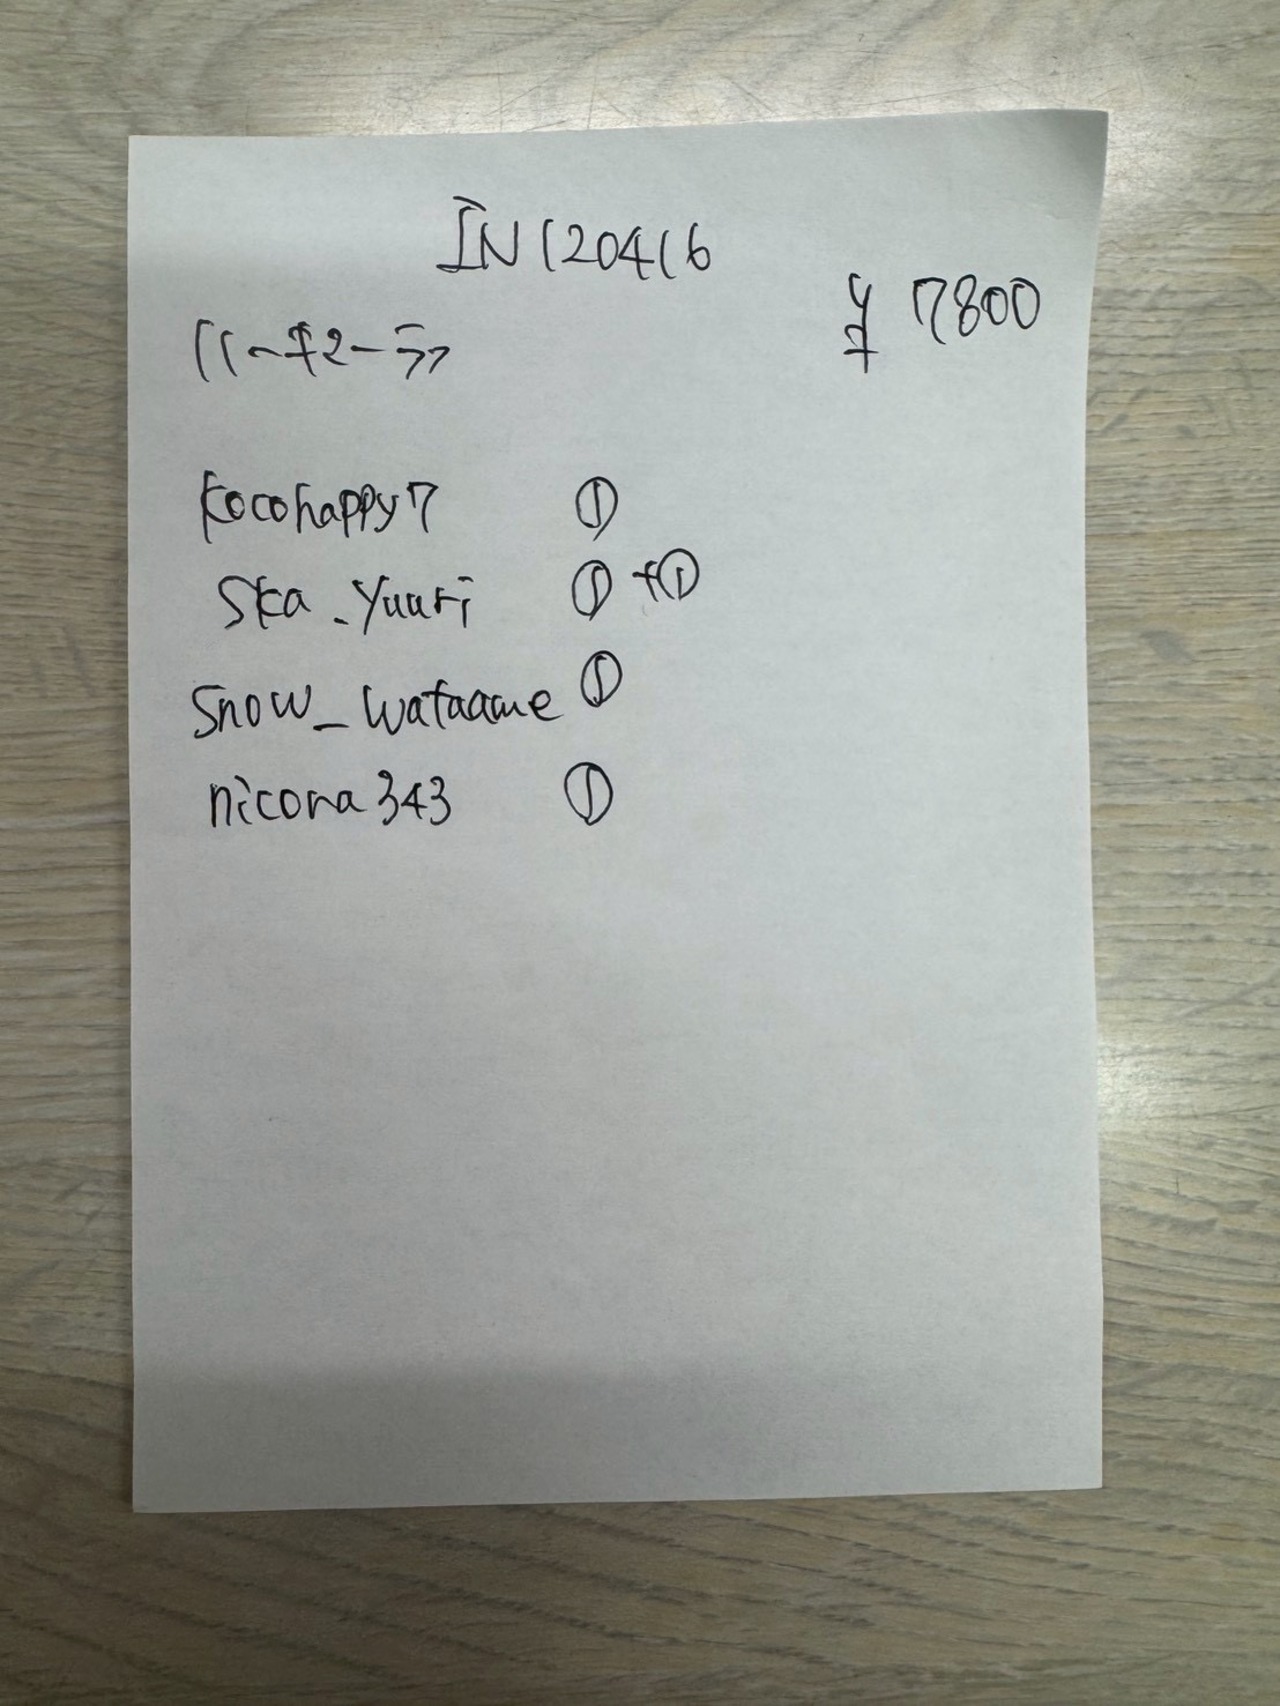 IN120416
¥ 7800
kocohappy7 ①
Ska_Yuuri ① +①
Snow_wataame ①
nicora343 ①